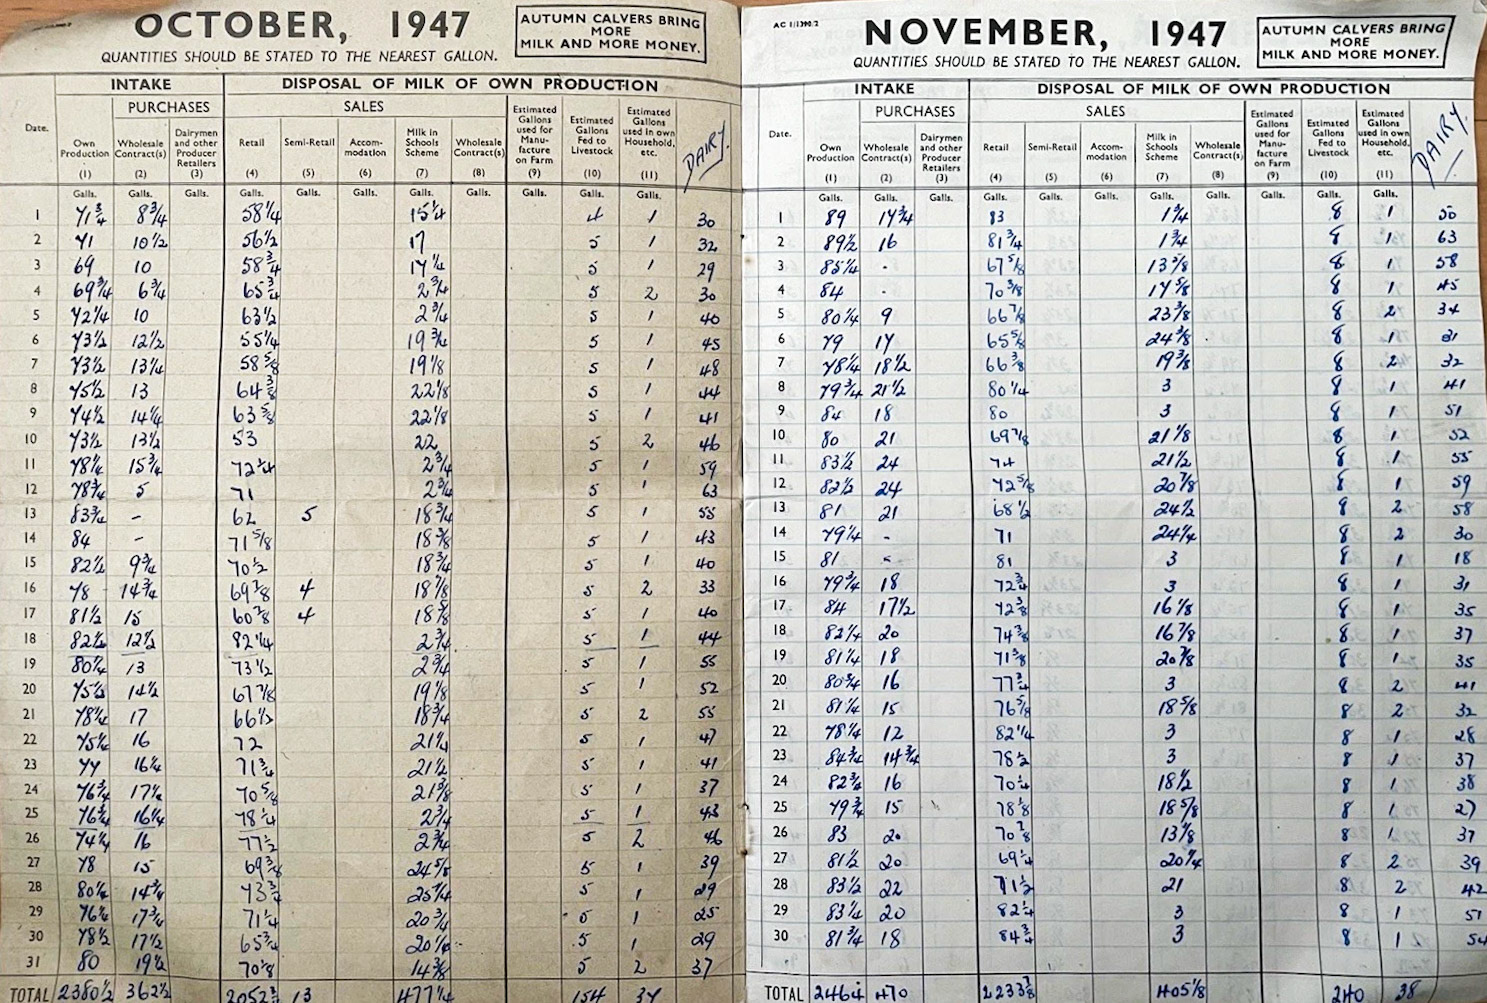 OCTOBER, 1947
AUTUMN CALVERS BRING
MORE
MILK AND MORE MONEY.
QUANTITIES SHOULD BE STATED TO THE NEAREST GALLON.
INTAKE DISPOSAL OF MILK OF OWN PRODUCTION
PURCHASES SALES
Date. Own Production (1) Wholesale Contract(s) (2) Dairymen and other Producer Retailers (3) Retail (4) Semi-Retail (5) Accom-modation (6) Milk in Schools Scheme (7) Wholesale Contract(s) (8) Estimated Gallons used for Manu-facture on Farm (9) Estimated Gallons Fed to Livestock (10) Estimated Gallons used in own Household, etc. (11) DAIRY
Galls. Galls. Galls. Galls. Galls. Galls. Galls. Galls. Galls. Galls. Galls.
1 71¾ 8¾ 58¼ 15¼ 4 1 30
2 71 10½ 56½ 17 5 1 32
3 69 10 58¾ 17¼ 5 1 29
4 69¾ 6¾ 65¾ 2¾ 5 2 30
5 72¼ 10 63½ 2¾ 5 1 40
6 73½ 12½ 55¼ 19¾ 5 1 45
7 73½ 13¼ 58⅝ 19⅛ 5 1 48
8 75½ 13 64⅜ 22⅛ 5 1 44
9 74½ 14¼ 63⅝ 22⅛ 5 1 41
10 73½ 13½ 53 22 5 2 46
11 78¼ 15¾ 72¼ 2¾ 5 1 59
12 78¾ 5 71 2¾ 5 1 63
13 83¾ - 62 5 18¾ 5 1 55
14 84 - 71⅝ 18⅜ 5 1 43
15 82½ 9¾ 70½ 18¾ 5 1 40
16 78 14¾ 69⅞ 4 18⅞ 5 2 33
17 81½ 15 60⅞ 4 18⅝ 5 1 40
18 82½ 12½ 82¼ 2¾ 5 1 44
19 80¼ 13 73½ 2¾ 5 1 55
20 75½ 14½ 67⅞ 19⅛ 5 1 52
21 78¼ 17 66½ 18¾ 5 2 55
22 75¼ 16 72 21¼ 5 1 47
23 77 16¼ 71¾ 21½ 5 1 41
24 76¾ 17¼ 70⅝ 21⅜ 5 1 37
25 76¾ 16¼ 78¼ 2¾ 5 1 43
26 74¼ 16 77½ 2¾ 5 2 46
27 78 15 69⅜ 24⅝ 5 1 39
28 80¼ 14¾ 73¾ 25¼ 5 1 29
29 76¼ 17¾ 71¼ 20¾ 5 1 25
30 78½ 17½ 65¾ 20¼ 5 1 29
31 80 19½ 70⅛ 14⅜ 5 2 37
TOTAL 2380½ 362½ 2052¾ 13 477¼ 154 37
AC 1/1390/2
NOVEMBER, 1947
AUTUMN CALVERS BRING
MORE
MILK AND MORE MONEY.
QUANTITIES SHOULD BE STATED TO THE NEAREST GALLON.
INTAKE DISPOSAL OF MILK OF OWN PRODUCTION
PURCHASES SALES
Date. Own Production (1) Wholesale Contract(s) (2) Dairymen and other Producer Retailers (3) Retail (4) Semi-Retail (5) Accom-modation (6) Milk in Schools Scheme (7) Wholesale Contract(s) (8) Estimated Gallons used for Manu-facture on Farm (9) Estimated Gallons Fed to Livestock (10) Estimated Gallons used in own Household, etc. (11) DAIRY
Galls. Galls. Galls. Galls. Galls. Galls. Galls. Galls. Galls. Galls. Galls.
1 89 17¾ 83 1¾ 8 1 50
2 89½ 16 81¾ 1¾ 8 1 63
3 85¼ - 67⅝ 13⅞ 8 1 58
4 84 - 70⅜ 17⅝ 8 1 45
5 80¼ 9 66⅞ 23⅜ 8 2 34
6 79 17 65⅝ 24⅜ 8 1 31
7 78¼ 18½ 66⅜ 19⅜ 8 2 32
8 79¾ 21½ 80¼ 3 8 1 41
9 84 18 80 3 8 1 51
10 80 21 69⅞ 21⅛ 8 1 52
11 83½ 24 74 21½ 8 1 55
12 82½ 24 72⅝ 20⅞ 8 1 59
13 81 21 68½ 24½ 8 2 58
14 79¼ - 71 24¼ 8 2 30
15 81 - 81 3 8 1 18
16 79¾ 18 72¾ 3 8 1 31
17 84 17½ 72⅜ 16⅛ 8 1 35
18 82¼ 20 74⅜ 16⅞ 8 1 37
19 81¼ 18 71⅜ 20⅞ 8 1 35
20 80¾ 16 77¾ 3 8 2 41
21 81¼ 15 76⅝ 18⅝ 8 2 32
22 78¼ 12 82¼ 3 8 1 28
23 84¾ 14¾ 78½ 3 8 1 37
24 82¾ 16 70¼ 18½ 8 1 38
25 79¾ 15 78⅛ 18⅝ 8 1 27
26 83 20 70⅞ 13⅞ 8 1 37
27 81½ 20 69¼ 20¼ 8 2 39
28 83½ 22 71½ 21 8 2 42
29 83¼ 20 82¼ 3 8 1 51
30 81¾ 18 84¾ 3 8 1 54
TOTAL 2464 470 2233⅞ 405⅛ 240 38